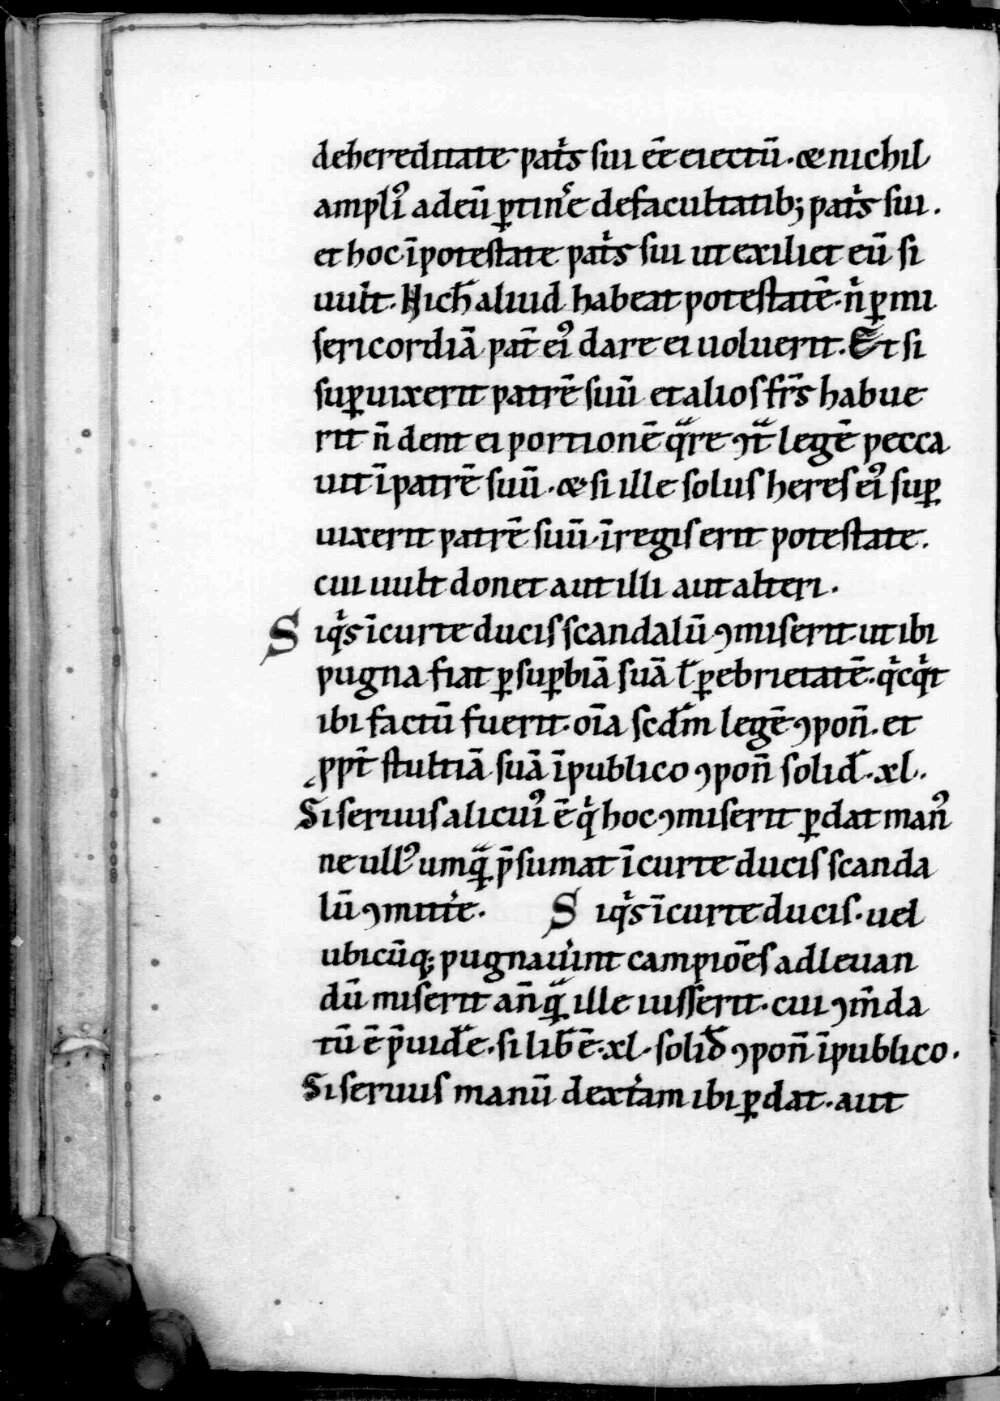 dehereditate pat̉s sui eē eiectū. & nichil
ampliꝰ ad eū ꝑtinͬe de facultatib; pat̉s sui.
et hoc ī potestate pat̉s sui ut exiliet eū si
uul̉t. Nich̄ aliud habeat potestatē. n̉ ꝑ mi
sericordiā pat̄ eiꝰ dare ei uoluerit. Et si
suꝑuixerit patrē suū et alios fr̄s habue
rit n̄ dent ei portionē qͣre ꝯtͣ legē pecca
uit ī patrē suū. & si ille solus heres eiꝰ suꝑ
uixerit patrē suū. ī regis erit potestate.
cui uult donet aut illi aut alteri.
Siq̉s ī curte ducis scandalū ꝯmiserit ut ibi
pugna fiat ꝑ suꝑbiā suā ł ꝑ ebrietatē. q̉cq̉t
ibi factū fuerit. oīa scd̄m legē ꝯpon̄. et
ꝓpt̄ stultiā suā ī publico ꝯpon̄ solid̄. xl.
Si seruus alicuiꝰ ē q̉ hoc ꝯmiserit ꝑdat manꝰ
ne ullꝰ umqͣ p̄sumat ī curte ducis scanda
lū ꝯmitt̉e. Siq̉s ī curte ducis. uel
ubicūq; pugnaủint campiōes ad leuan
dū miserit an̄qͣ ille iusserit. cui ꝯm̄da
tū ē p̄uid̄e. si lib̄ ē. xl. solid̄ ꝯpon̄ ī publico.
Si seruus manū dext̉am ibi ꝑdat. aut